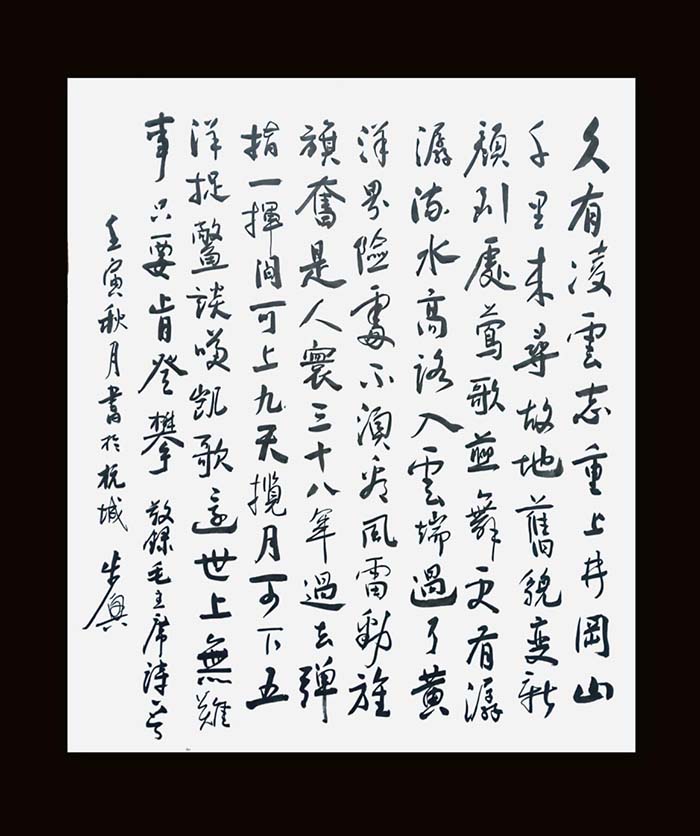 久有凌雲志重上井岡山
千里来尋故地舊貌变新
顔到處鶯歌燕舞更有潺
潺流水高路入雲端過了黄
洋界險處不須看風雷動旌
旗奮是人寰三十八年過去弹
指一揮間可上九天揽月可下五
洋捉鱉談笑凯歌還世上無難
事只要肯登攀 敬錄毛主席詩
壬寅秋月書於杭城